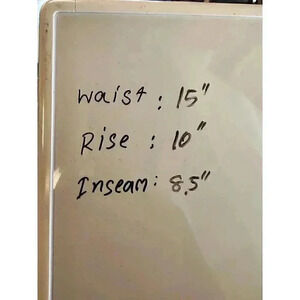 Waist: 15"
Rise : 10"
Inseam: 8.5"